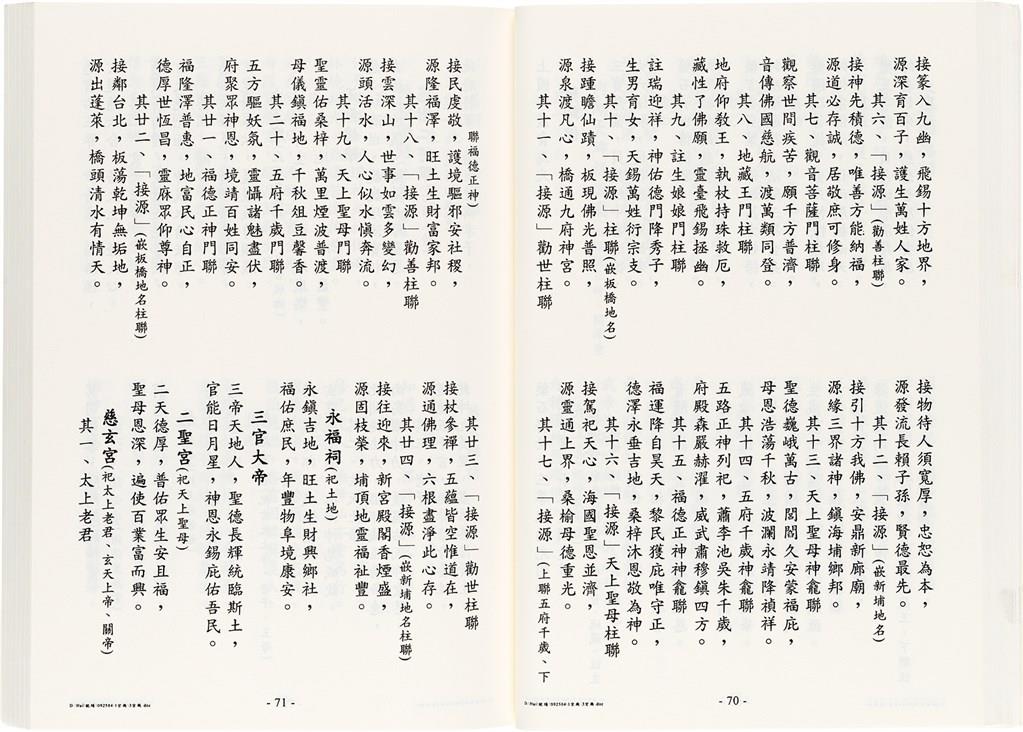 接篆入九幽，飛錫十方地界，
源深育百子，護生萬姓人家。
其六、「接源」(勸善柱聯)
接神先積德，唯善方能納福，
源道必存誠，居敬庶可修身。
其七、觀音菩薩門柱聯
觀察世間疾苦，願千方普濟，
音傳佛國慈航，渡萬類同登。
其八、地藏王門柱聯
地府仰教王，執杖持珠救厄，
藏性了佛願，靈臺飛錫拯幽。
其九、註生娘娘門柱聯
註瑞迎祥，神佑德門降秀子，
生男育女，天錫萬姓衍宗支。
其十、「接源」柱聯(嵌板橋地名)
接踵瞻仙蹟，板現佛光普照，
源泉渡凡心，橋通九府神宮。
其十一、「接源」勸世柱聯
接物待人須寬厚，忠恕為本，
源發流長賴子孫，賢德最先。
其十二、「接源」(嵌新埔地名)
接引十方我佛，安鼎新廊廟，
源緣三界諸神，鎮海埔鄉邦。
其十三、天上聖母神龕聯
聖德巍峨萬古，閭閻久安蒙福庇，
母恩浩蕩千秋，波瀾永靖降禎祥。
其十四、五府千歲神龕聯
五路正神列祀，蕭李池吳朱千歲，
府殿森嚴赫濯，威武肅穆鎮四方。
其十五、福德正神神龕聯
福運降自昊天，黎民獲庇唯守正，
德澤永垂吉地，桑梓沐恩敬為神。
其十六、「接源」天上聖母柱聯
接駕祀天心，海國聖恩並濟，
源靈通上界，桑榆母德重光。
其十七、「接源」(上聯五府千歲、下
- 70 -
聯福德正神)
接民虔敬，護境驅邪安社稷，
源隆福澤，旺土生財富家邦。
其十八、「接源」勸善柱聯
接雲深山，世事如雲多變幻，
源頭活水，人心似水慎奔流。
其十九、天上聖母門聯
聖靈佑桑梓，萬里煙波普渡，
母儀鎮福地，千秋俎豆馨香。
其二十、五府千歲門聯
五方驅妖氛，靈懾諸魅盡伏，
府聚眾神恩，境靖百姓同安。
其廿一、福德正神門聯
福隆澤普惠，地富民心自正，
德厚世恆昌，靈庥眾仰尊神。
其廿二、「接源」(嵌板橋地名柱聯)
接鄰台北，板蕩乾坤無垢地，
源出蓬萊，橋頭清水有情天。
其廿三、「接源」勸世柱聯
接杖參禪，五蘊皆空惟道在，
源通佛理，六根盡淨此心存。
其廿四、「接源」(嵌新埔地名柱聯)
接往迎來，新宮殿閣香煙盛，
源固枝榮，埔頂地靈福祉豐。
永福祠(祀土地)
永鎮吉地，旺土生財興鄉社，
福佑庶民，年豐物阜境康安。
三官大帝
三帝天地人，聖德長輝統臨斯土，
官能日月星，神恩永錫庇佑吾民。
二聖宮(祀天上聖母)
二天德厚，普佑眾生安且福，
聖母恩深，遍使百業富而興。
慈玄宮(祀太上老君、玄天上帝、關帝)
其一、太上老君
- 71 -